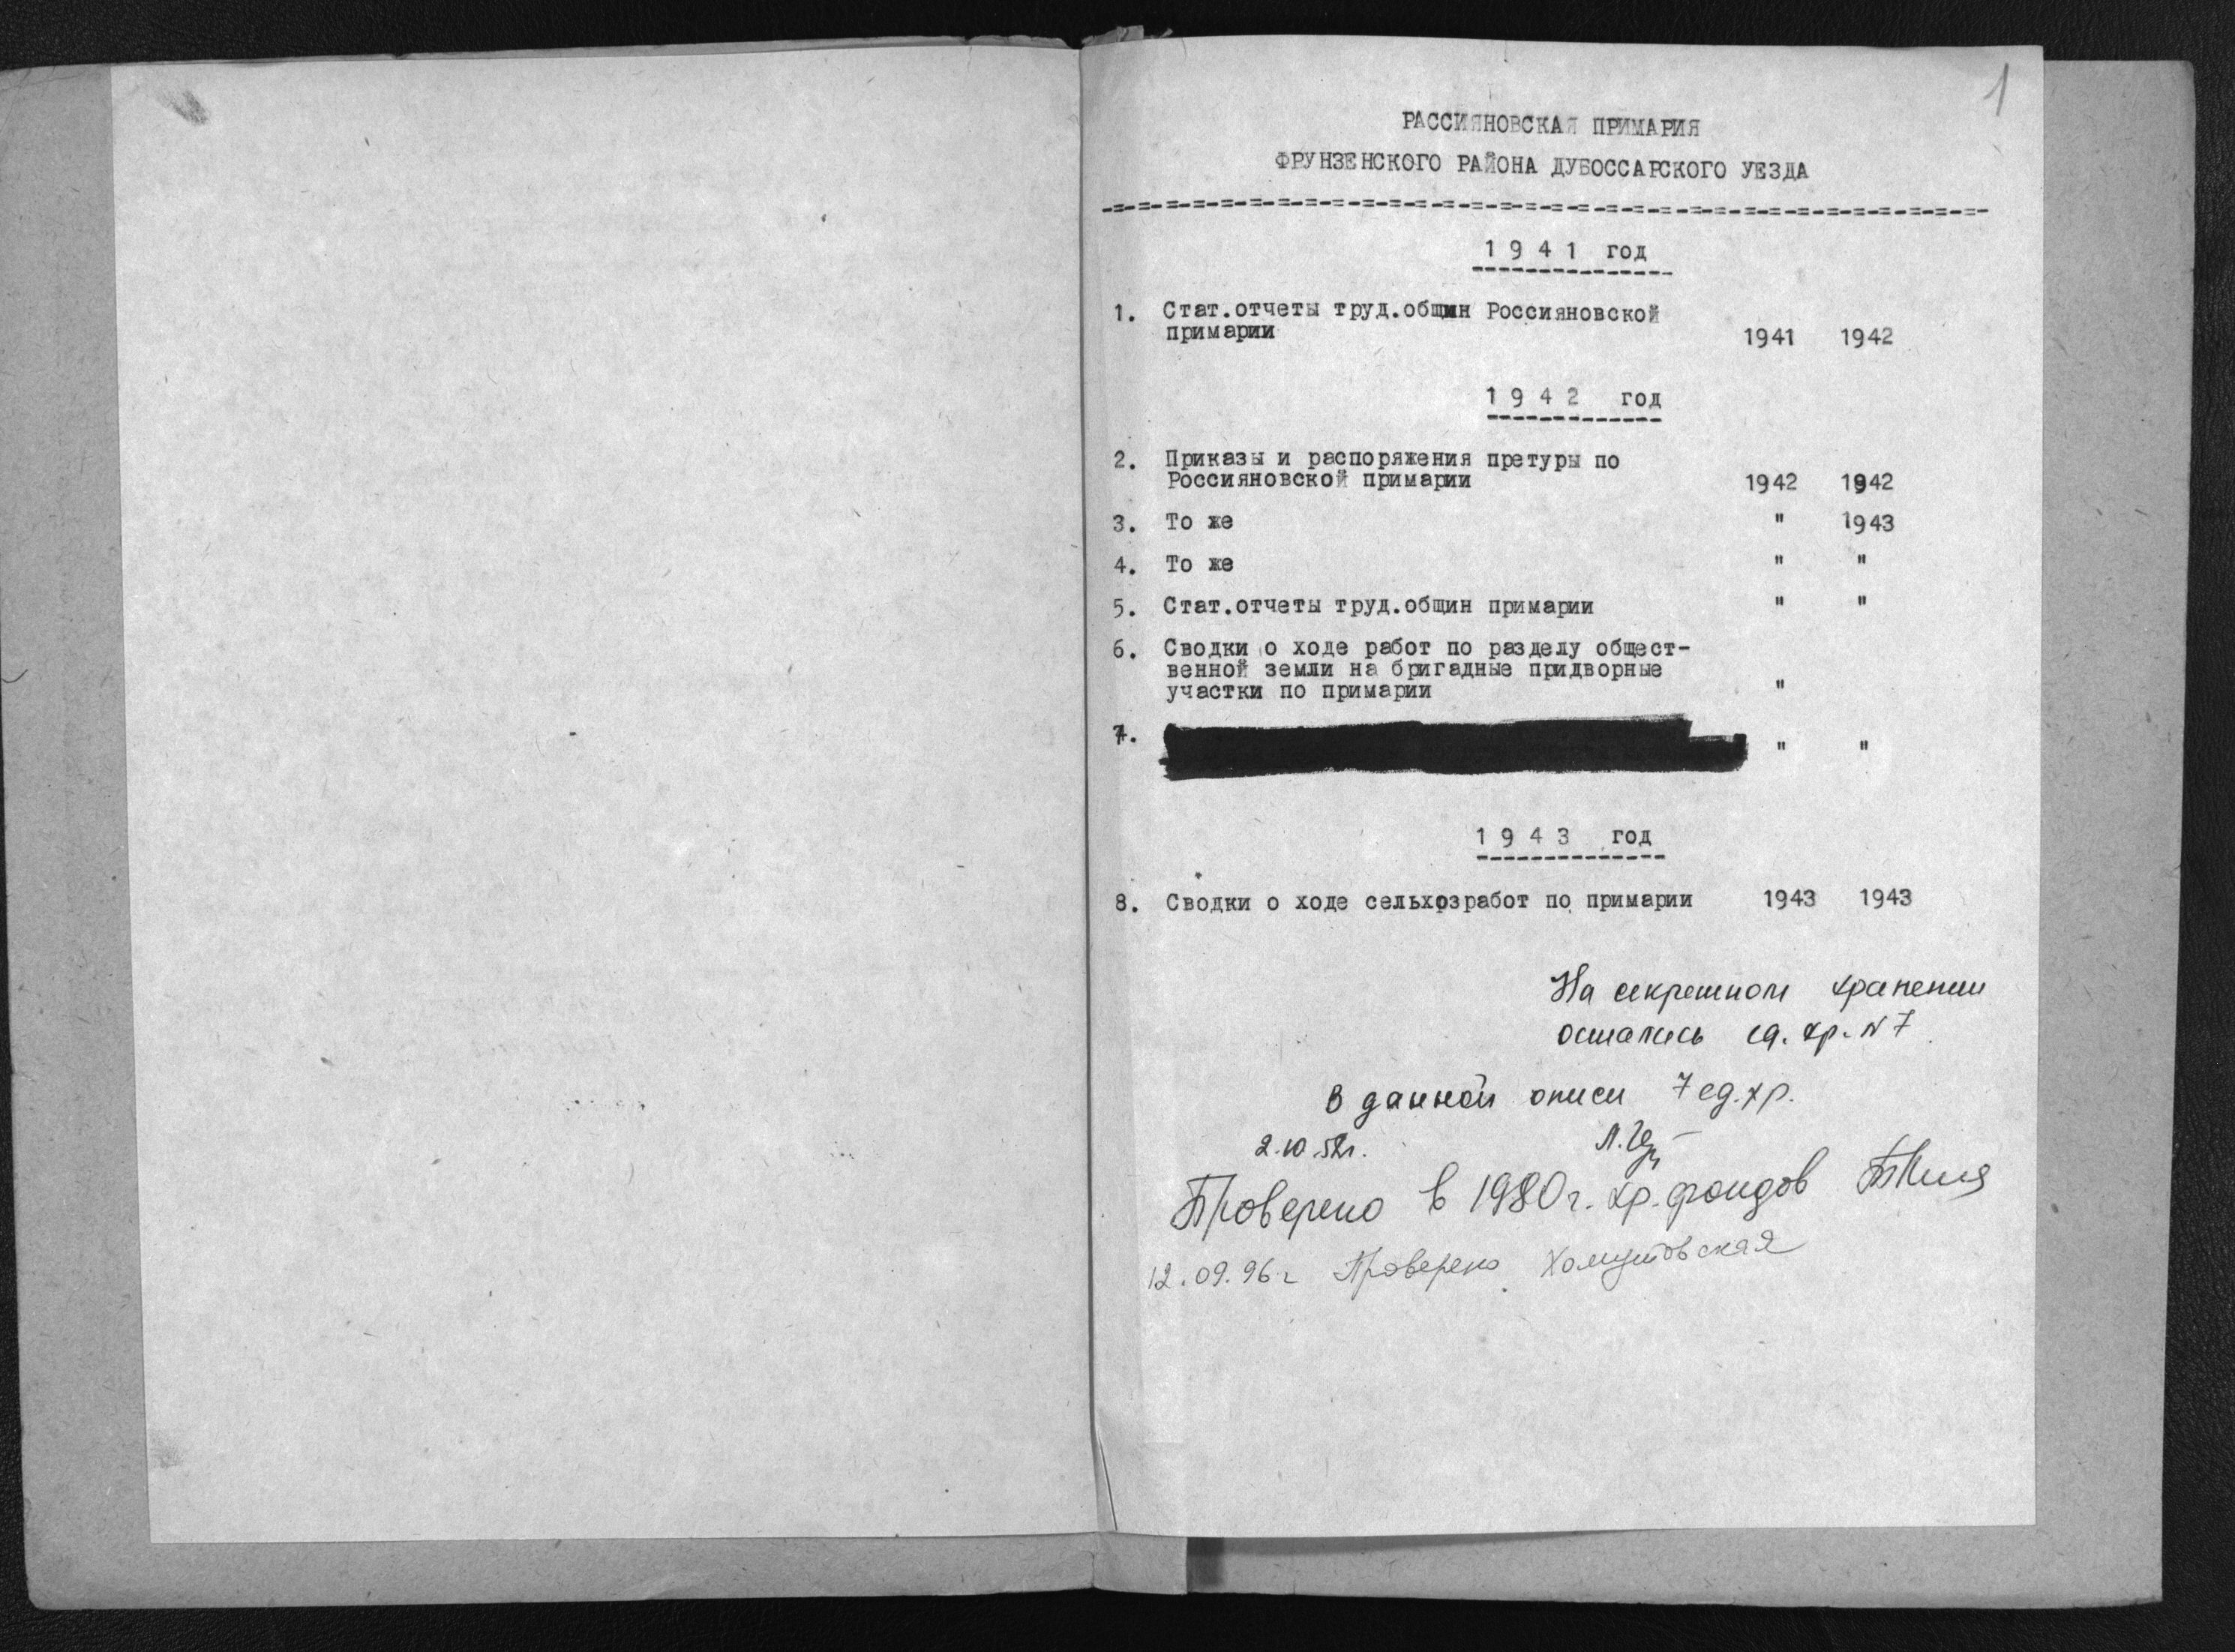 1
РАССИЯНОВСКАЯ ПРИМАРИЯ
ФРУНЗЕНСКОГО РАЙОНА ДУБОССАРСКОГО УЕЗДА
-=-=-=-=-=-=-=-=-=-=-=-=-=-=-=-=-=-=-=-=-=-=-=-=-=-=-=-=-=-=-=-
1 9 4 1 год
1. Стат.отчеты труд.общин Россияновской
примарии 1941 1942
1 9 4 2 год
2. Приказы и распоряжения претуры по
Россияновской примарии 1942 1942
3. То же " 1943
4. То же " "
5. Стат.отчеты труд.общин примарии " "
6. Сводки о ходе работ по разделу общест-
венной земли на бригадные придворные
участки по примарии "
7. " "
1 9 4 3 год
8. Сводки о ходе сельхозработ по примарии 1943 1943
На секретном хранении
остались ед. хр. N 7
В данной описи 7 ед. хр.
2.10.52г.
Проверено в 1980 г. хр. фондов
12.09.96 г Проверено Хомутовская